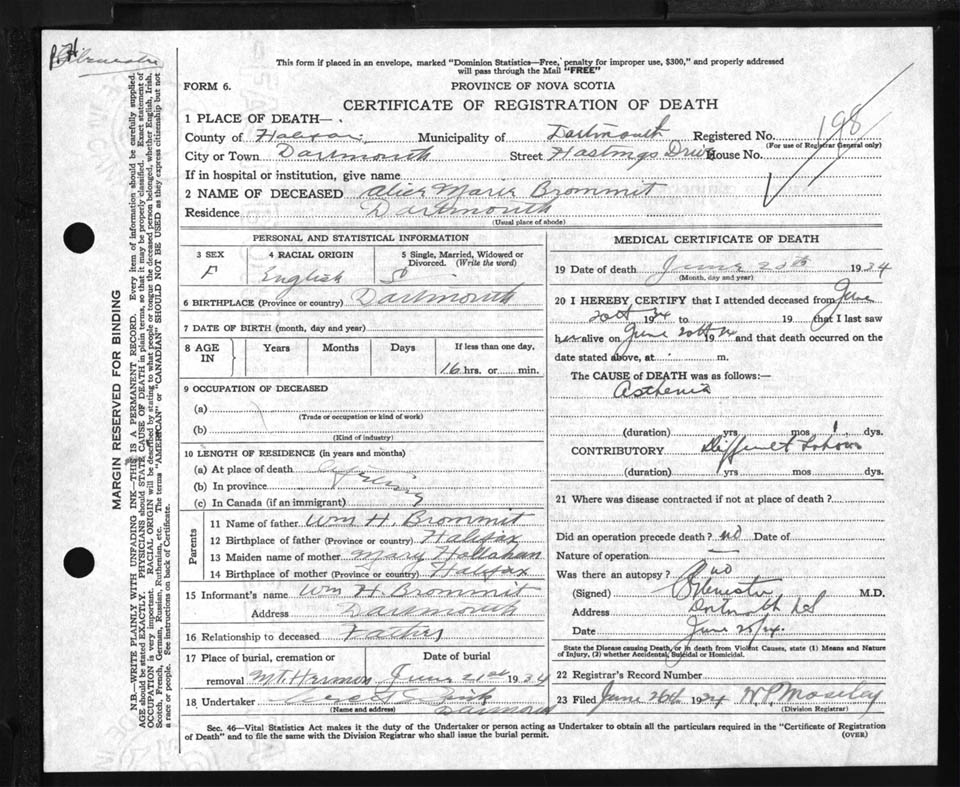 This form if placed in an envelope, marked "Dominion Statistics—Free, penalty for improper use, $300," and properly addressed
will pass through the Mail "FREE"
FORM 6.
PROVINCE OF NOVA SCOTIA
CERTIFICATE OF REGISTRATION OF DEATH
1 PLACE OF DEATH—
County of Halifax Municipality of Dartmouth Registered No. 198
(For use of Registrar General only)
City or Town Dartmouth Street Hastings Drive House No.
If in hospital or institution, give name
2 NAME OF DECEASED Alice Marie Brommit
Residence Dartmouth
(Usual place of abode)
PERSONAL AND STATISTICAL INFORMATION
3 SEX 4 RACIAL ORIGIN 5 Single, Married, Widowed or
Divorced. (Write the word)
F English S
6 BIRTHPLACE (Province or country) Dartmouth
7 DATE OF BIRTH (month, day and year)
8 AGE IN Years Months Days If less than one day,
16 hrs. or min.
9 OCCUPATION OF DECEASED
(a)
(Trade or occupation or kind of work)
(b)
(Kind of industry)
10 LENGTH OF RESIDENCE (in years and months)
(a) At place of death
(b) In province
(c) In Canada (if an immigrant)
Parents
11 Name of father Wm H. Brommit
12 Birthplace of father (Province or country) Halifax
13 Maiden name of mother Mary Hallahan
14 Birthplace of mother (Province or country) Halifax
15 Informant's name Wm H. Brommit
Address Dartmouth
16 Relationship to deceased Father
17 Place of burial, cremation or Date of burial
removal Mt. Hermon June 21st 1934
18 Undertaker
(Name and address) Dartmouth
MEDICAL CERTIFICATE OF DEATH
19 Date of death June 20th 1934
(Month, day and year)
20 I HEREBY CERTIFY that I attended deceased from June
20th 1934 to 19 that I last saw
her alive on June 20th 1934 and that death occurred on the
date stated above, at m.
The CAUSE of DEATH was as follows:—
Asthenia
(duration) yrs. mos. dys.
CONTRIBUTORY Difficult Labour
(duration) yrs. mos. dys.
21 Where was disease contracted if not at place of death?
Did an operation precede death? no Date of
Nature of operation —
Was there an autopsy? no
(Signed) M.D.
Address Dartmouth NS
Date June 20/34
State the Disease causing Death, or in death from Violent Causes, state (1) Means and Nature
of Injury, (2) whether Accidental, Suicidal or Homicidal.
22 Registrar's Record Number
23 Filed June 26th 1934 W P Moseley
(Division Registrar)
Sec. 46—Vital Statistics Act makes it the duty of the Undertaker or person acting as Undertaker to obtain all the particulars required in the "Certificate of Registration
of Death" and to file the same with the Division Registrar who shall issue the burial permit.
(OVER)
MARGIN RESERVED FOR BINDING
N.B.—WRITE PLAINLY WITH UNFADING INK—THIS IS A PERMANENT RECORD. Every item of information should be carefully supplied.
AGE should be stated EXACTLY. PHYSICIANS should STATE CAUSE OF DEATH in plain terms, so that it may be properly classified. Exact statement of
OCCUPATION is very important. RACIAL ORIGIN will be described by stating to what people or tongue the deceased person belonged, whether English, Irish,
Scotch, French, German, Russian, Ruthenian, etc. The terms "AMERICAN" or "CANADIAN" SHOULD NOT BE USED as they express citizenship but not
a race or people. See instructions on back of Certificate.